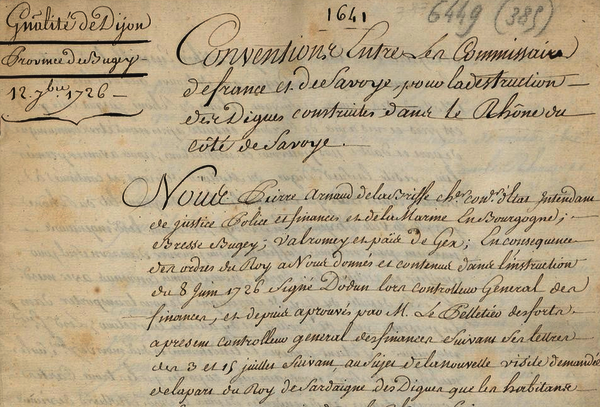 1641
6449 (385)
Gnalité de Dijon
Province du Bugey
12. 7bre 1726
Conventions Entre Les Commissaires
de france et de Savoye, pour la destruction
des Digues construites dans le Rhône du
côté de Savoye.
Nous Pierre Arnaud de la Briffe cher. conr. d'Etat Intendant
de justice Police et finances et de la Marine En Bourgogne;
Bresse Bugey; Valromey et païs de Gex; En consequence
des ordres du Roy a Nous donnés et contenus dans l'instruction
du 8 Juin 1726 Signé Dodun lors controlleur General des
finances, et depuis aprouvés par M. Le Pelletier desforts
apresent controlleur general des finances Suivant Ses lettres
des 3 et 15 juillet Suivant au Sujet de la nouvelle visite demandée
de la part du Roy de Sardaigne des Digues que les habitans